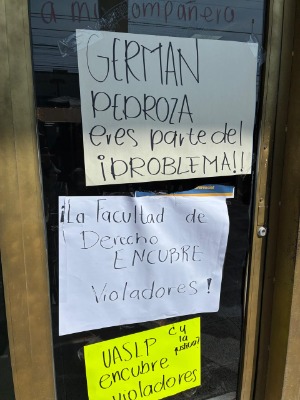 a mi compañera
GERMAN
PEDROZA
eres parte del
¡PROBLEMA!!
¡La Facultad de
Derecho
ENCUBRE
Violadores!
UASLP
encubre
violadores